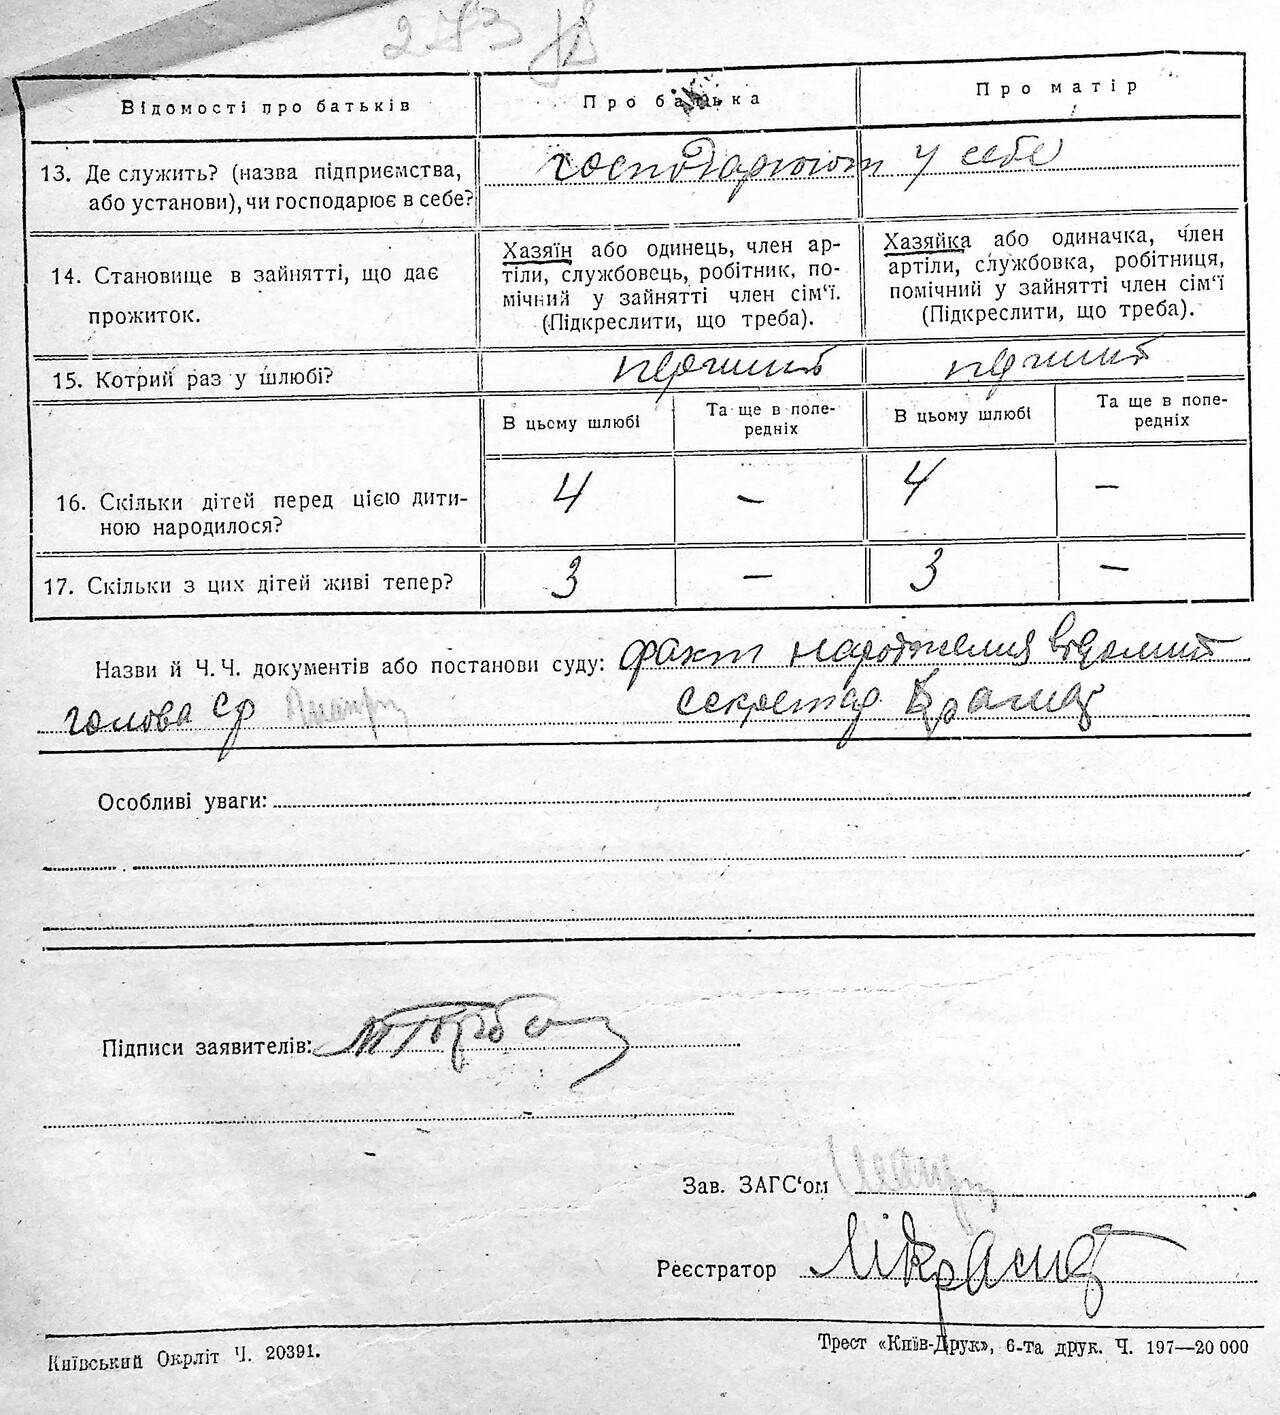 273
Відомості про батьків
Про батька
Про матір
13. Де служить? (назва підприємства,
або установи), чи господарює в себе?
господарюють у себе
14. Становище в зайнятті, що дає
прожиток.
Хазяїн або одинець, член ар-
тіли, службовець, робітник, по-
мічний у зайнятті член сім‘ї.
(Підкреслити, що треба).
Хазяйка або одиначка, член
артіли, службовка, робітниця,
помічний у зайнятті член сім‘ї
(Підкреслити, що треба).
15. Котрий раз у шлюбі?
перший
перший
В цьому шлюбі
Та ще в попе-
редніх
В цьому шлюбі
Та ще в попе-
редніх
16. Скільки дітей перед цією дити-
ною народилося?
4 — 4 —
17. Скільки з цих дітей живі тепер?
3 — 3 —
Назви й Ч.Ч. документів або постанови суду: факт народження відомий
голова ср секретар
Особливі уваги:
Підписи заявителів:
Зав. ЗАГС‘ом
Реєстратор
Київський Окрліт Ч. 20391.
Трест «Київ-Друк», 6-та друк. Ч. 197—20 000